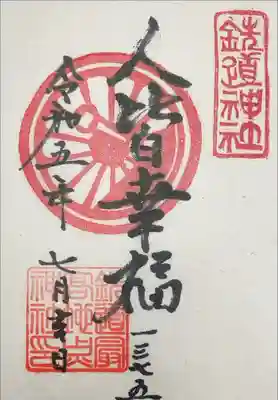 鉄道神社
人皆幸福
一三七五
令和五年
七月吉日